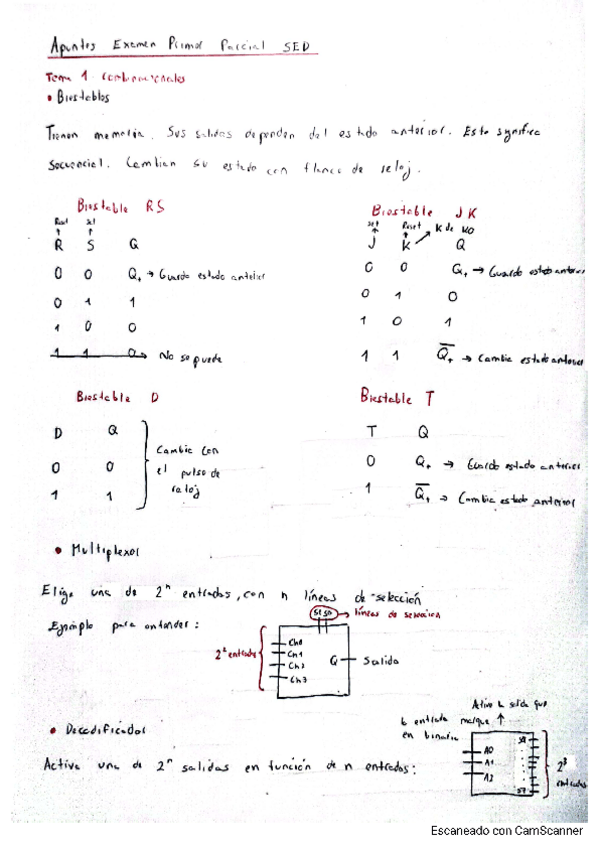 Apuntes Examen Primer Parcial SED
Tema 1 Combinacionales
• Biestables
Tienen memoria. Sus salidas dependen del estado anterior. Esto significa
secuencial. Cambian su estado con flanco de reloj.
Biestable RS
Reset Set
R S Q
0 0 Qt → Guardo estado anterior
0 1 1
1 0 0
1 1 0 → No se puede
Biestable JK
Set Reset K de KO
J K Q
0 0 Qt → Guardo estado anterior
0 1 0
1 0 1
1 1 Q̅t → Cambia estado anterior
Biestable D
D Q
0 0
1 1
Cambia con
el pulso de
reloj
Biestable T
T Q
0 Qt → Guardo estado anterior
1 Q̅t → Cambia estado anterior
• Multiplexor
Elige una de 2ⁿ entradas, con n líneas de selección
Ejemplo para entender:
S1 S0 → líneas de selección
2² entradas
Ch0
Ch1
Ch2
Ch3
Q
Salida
• Decodificador
Activa una de 2ⁿ salidas en función de n entradas:
Activa la salida que
la entrada marque
en binario
A0
A1
A2
S0
S7
2³
entradas
Escaneado con CamScanner